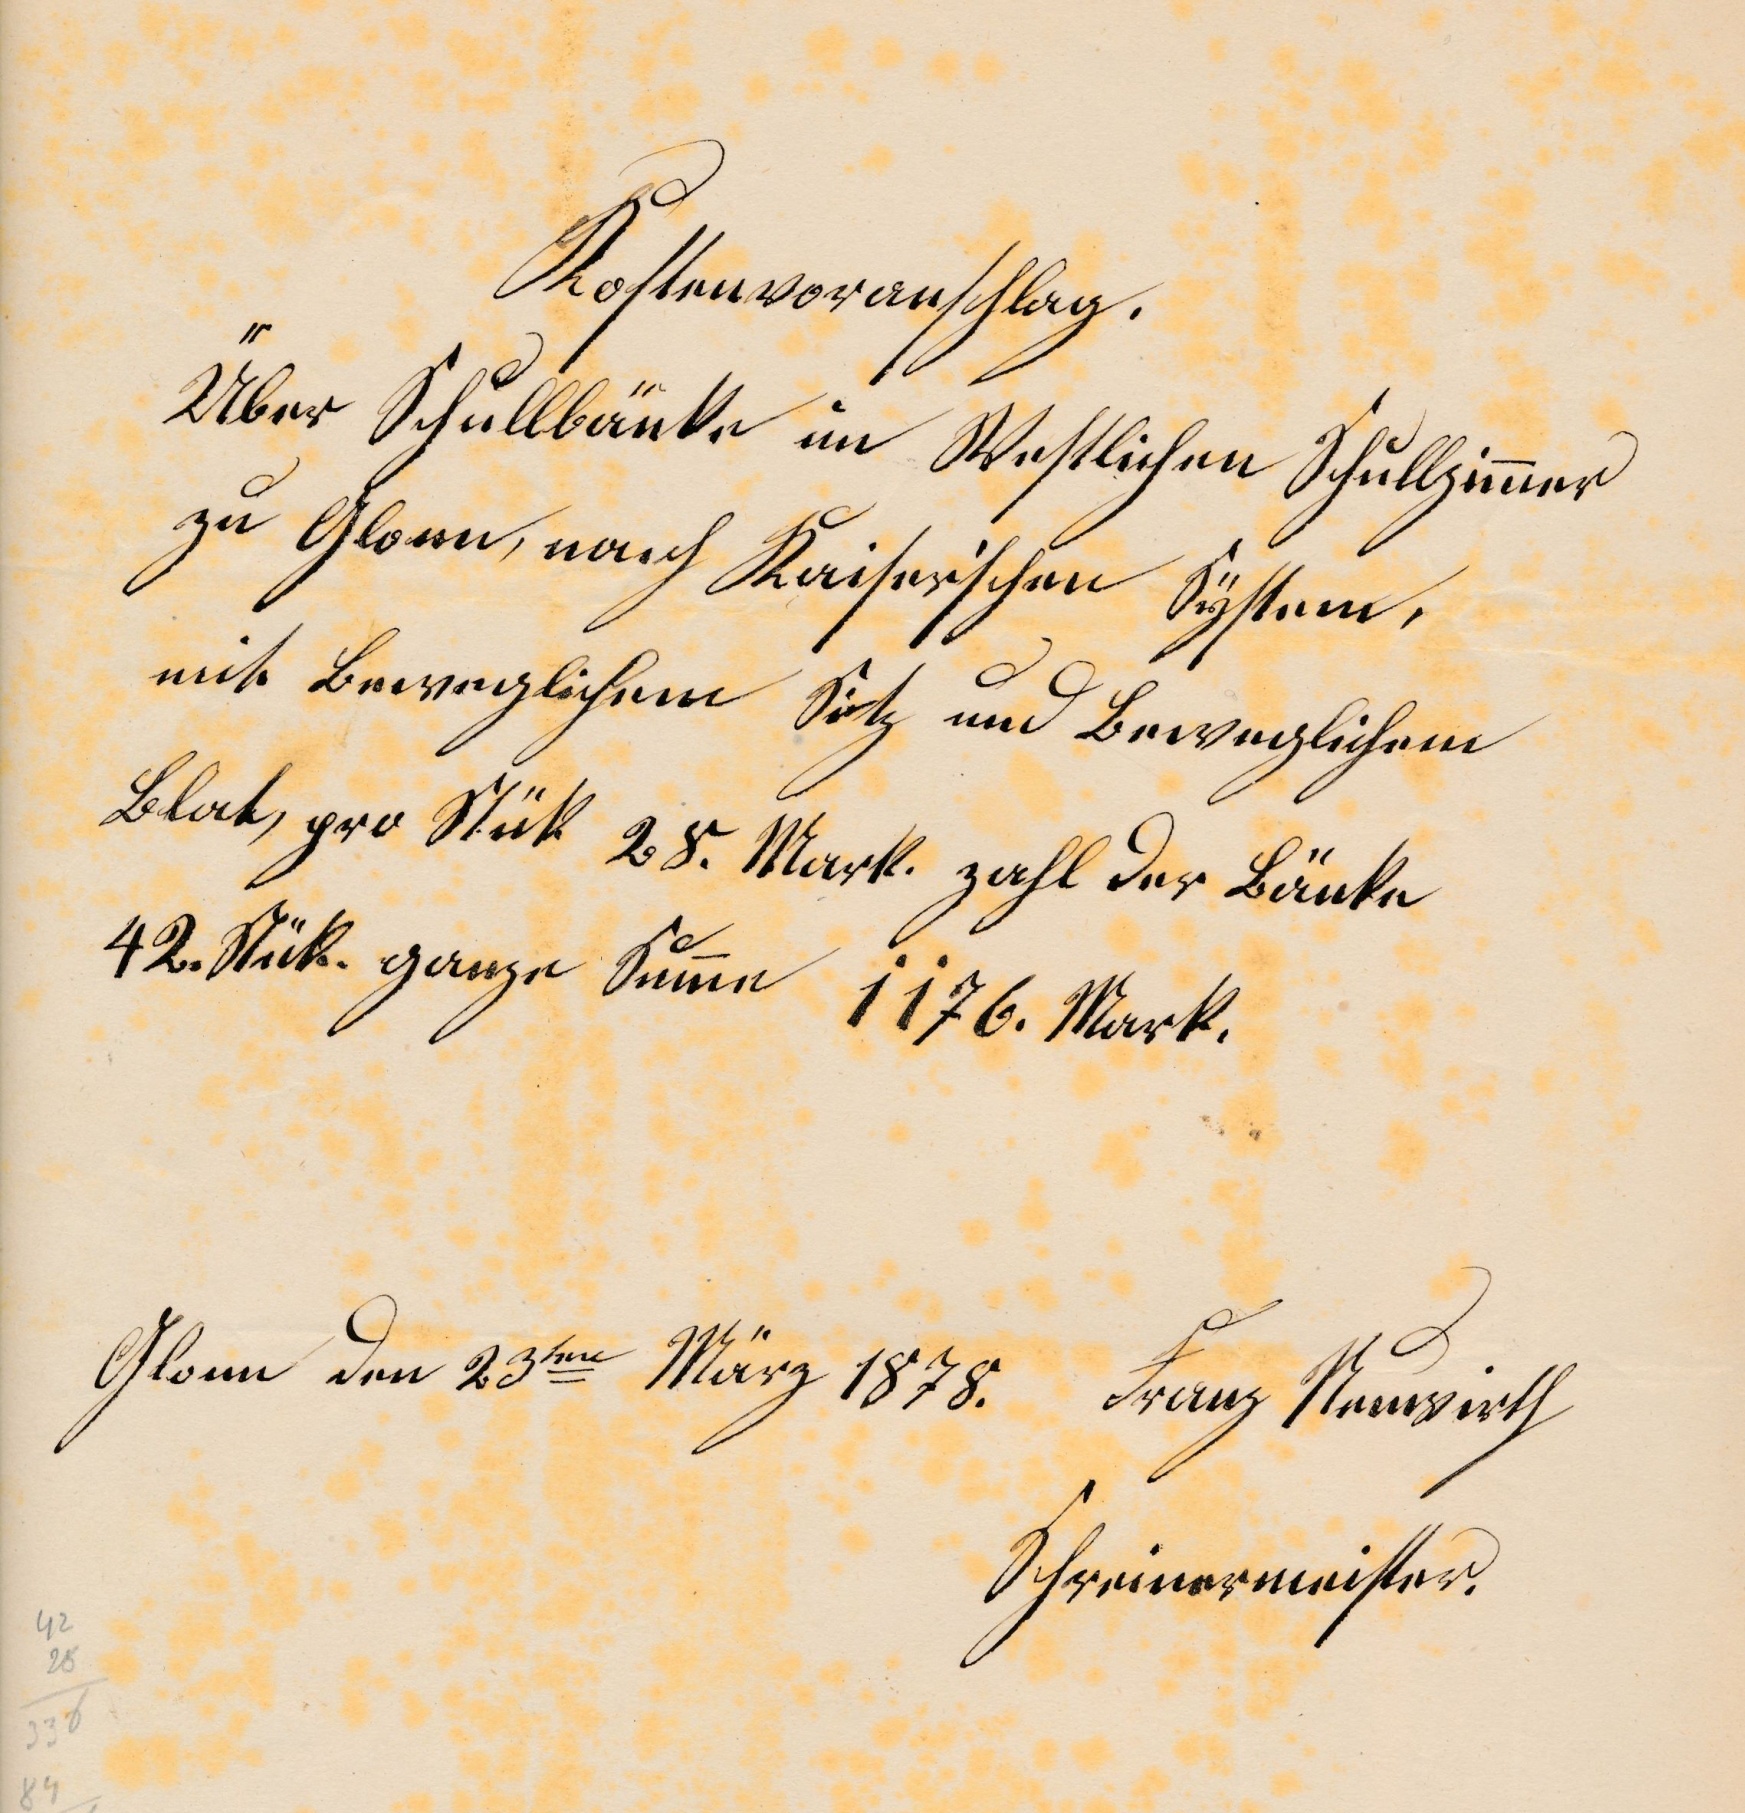 Kostenvoranschlag.
Über Schullbänke im Westlichen Schullzim̅er
zu Glonn, nach Kaiser'schen Sÿstem,
mit Beweglichem Sitz und Beweglichem
Blat, pro Stük 28. Mark. zahl der Bänke
42. Stük. ganze Sum̅e 1176. Mark.
Glonn den 23ten März 1878. Franz Neuwirth
Schreinermeister.
42
28
336
84